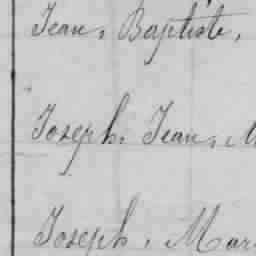 Jean, Baptiste,
Joseph, Jean, M
Joseph, Mar